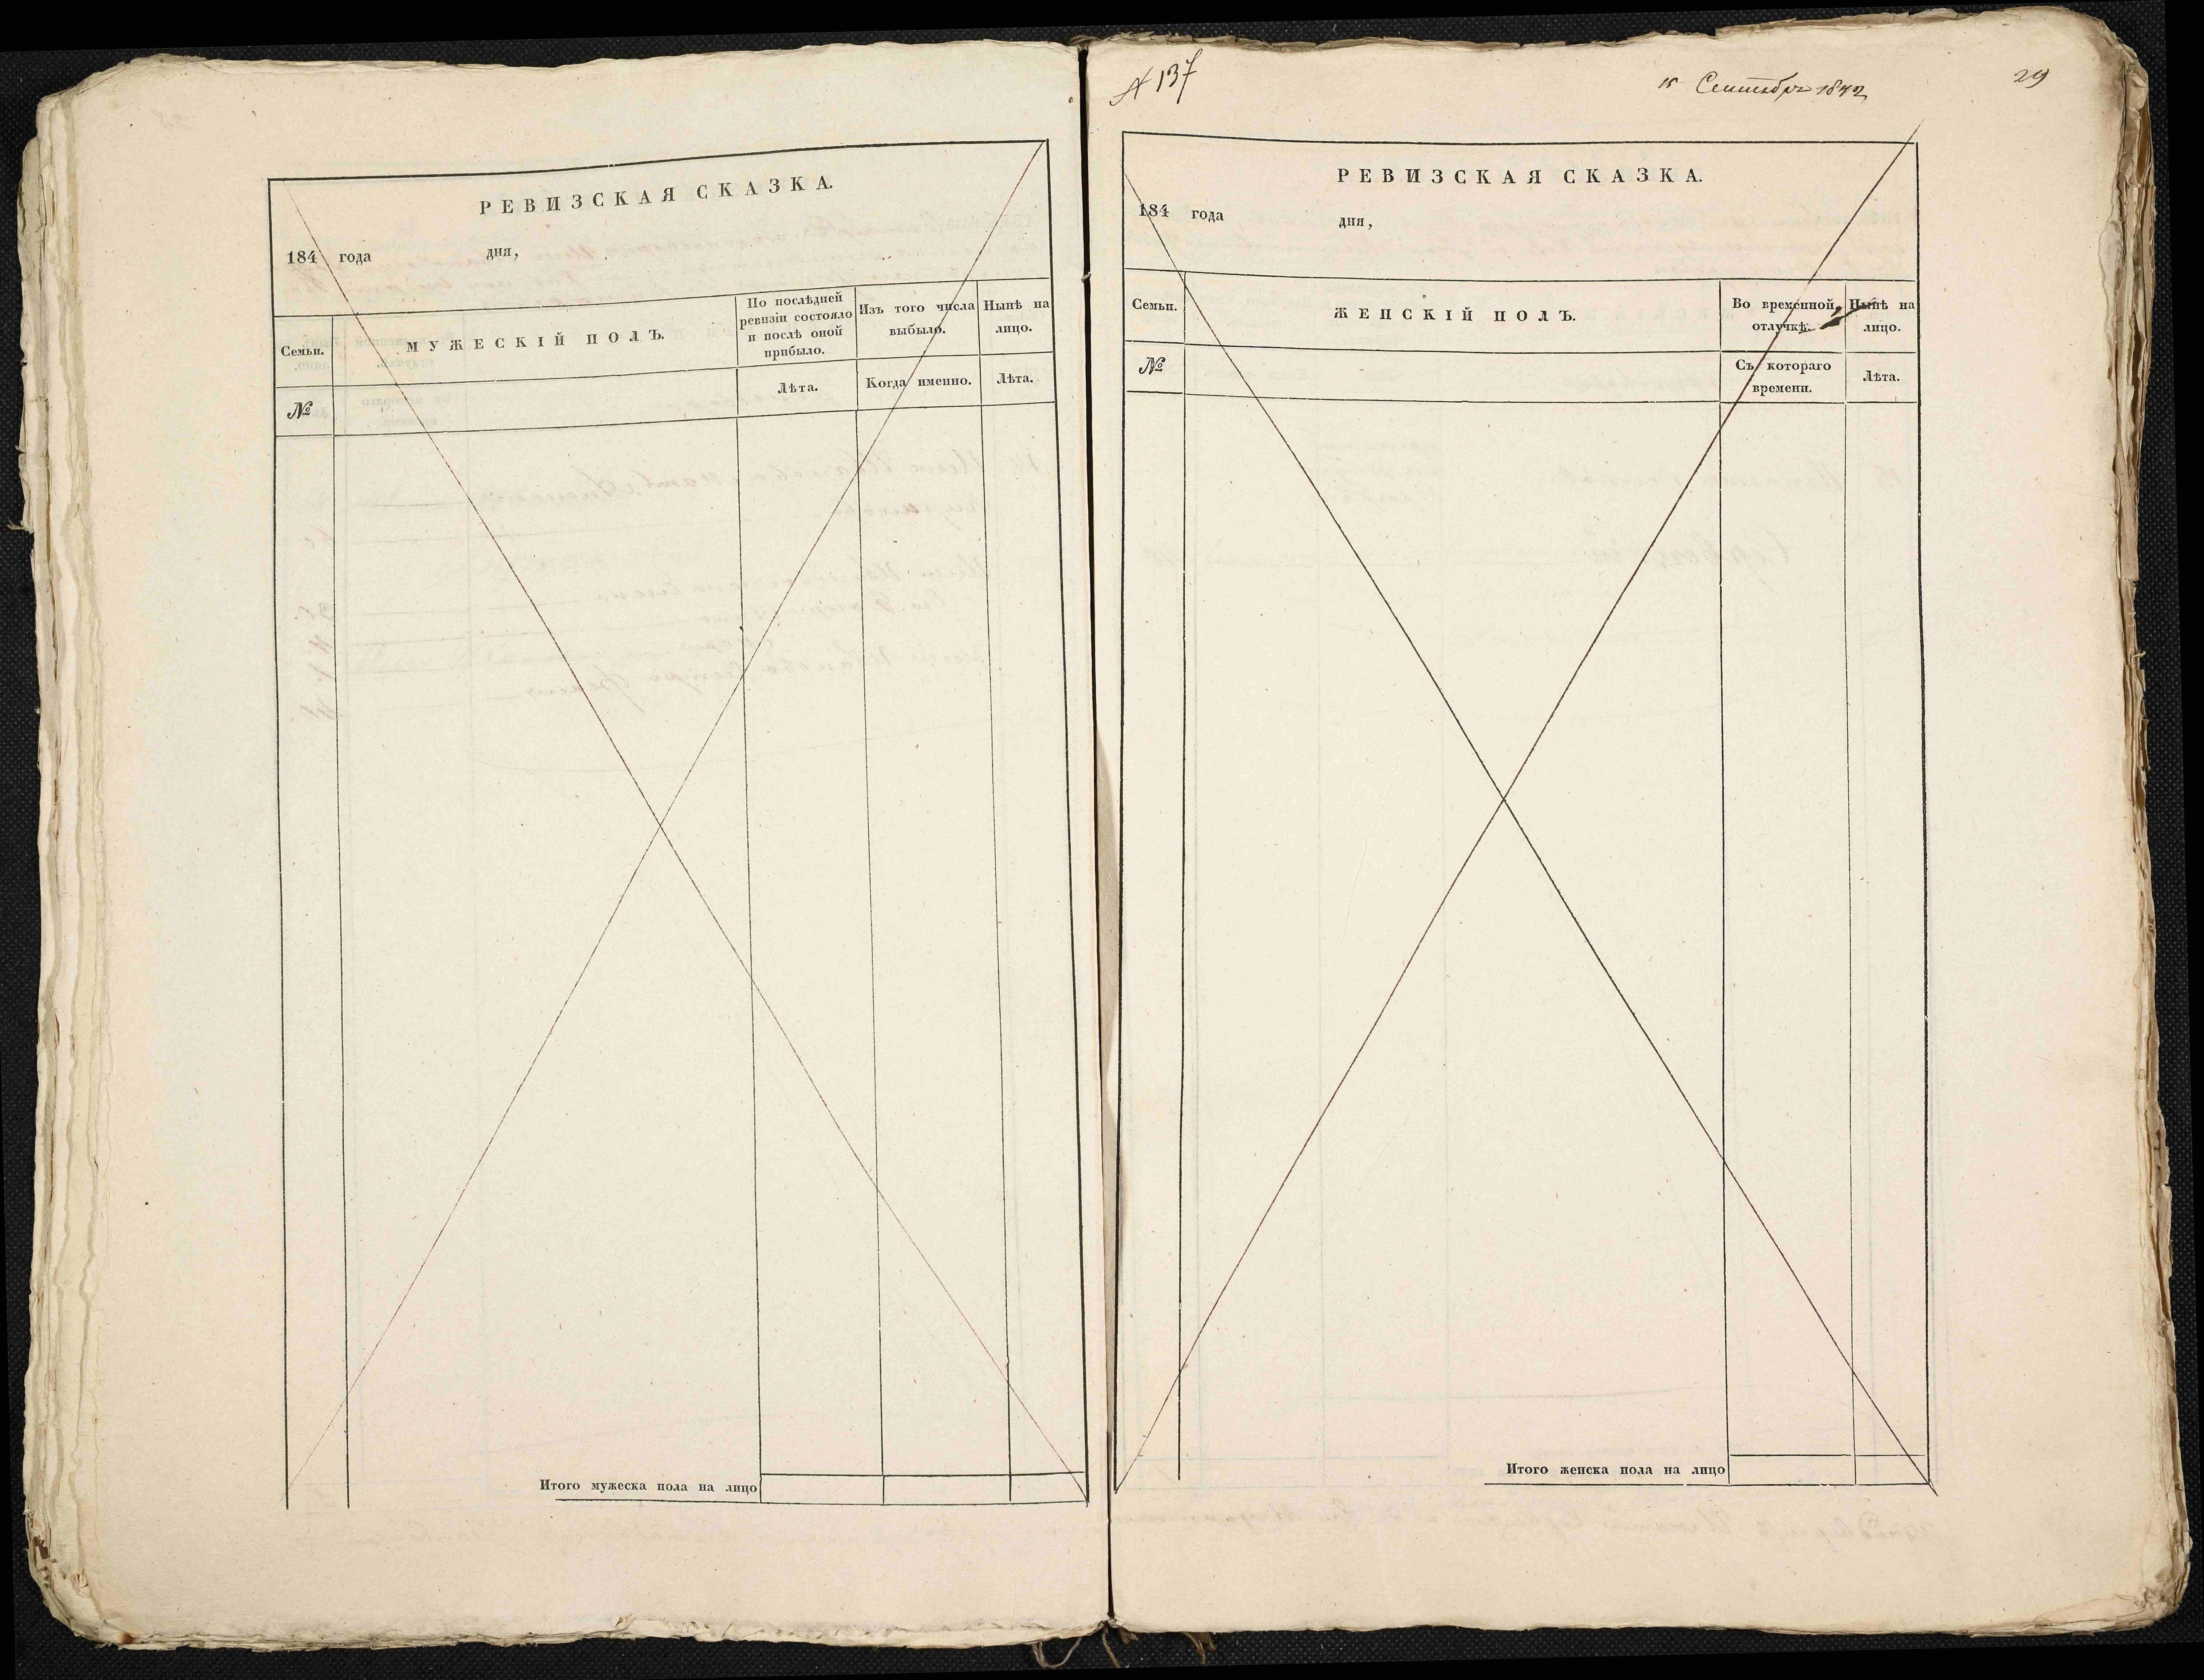 РЕВИЗСКАЯ СКАЗКА.
184 года дня,
Семьи.
МУЖЕСКІЙ ПОЛЪ.
По послѣдней
ревизіи состояло
и послѣ оной
прибыло.
Изъ того числа
выбыло.
Нынѣ на
лицо.
№
Лѣта.
Когда именно.
Лѣта.
Итого мужеска пола на лицо
№ 137
15 Сентября 1842
29
РЕВИЗСКАЯ СКАЗКА.
184 года дня,
Семьи.
ЖЕНСКІЙ ПОЛЪ.
Во временной
отлучкѣ.
Нынѣ на
лицо.
№
Съ котораго
времени.
Лѣта.
Итого женска пола на лицо